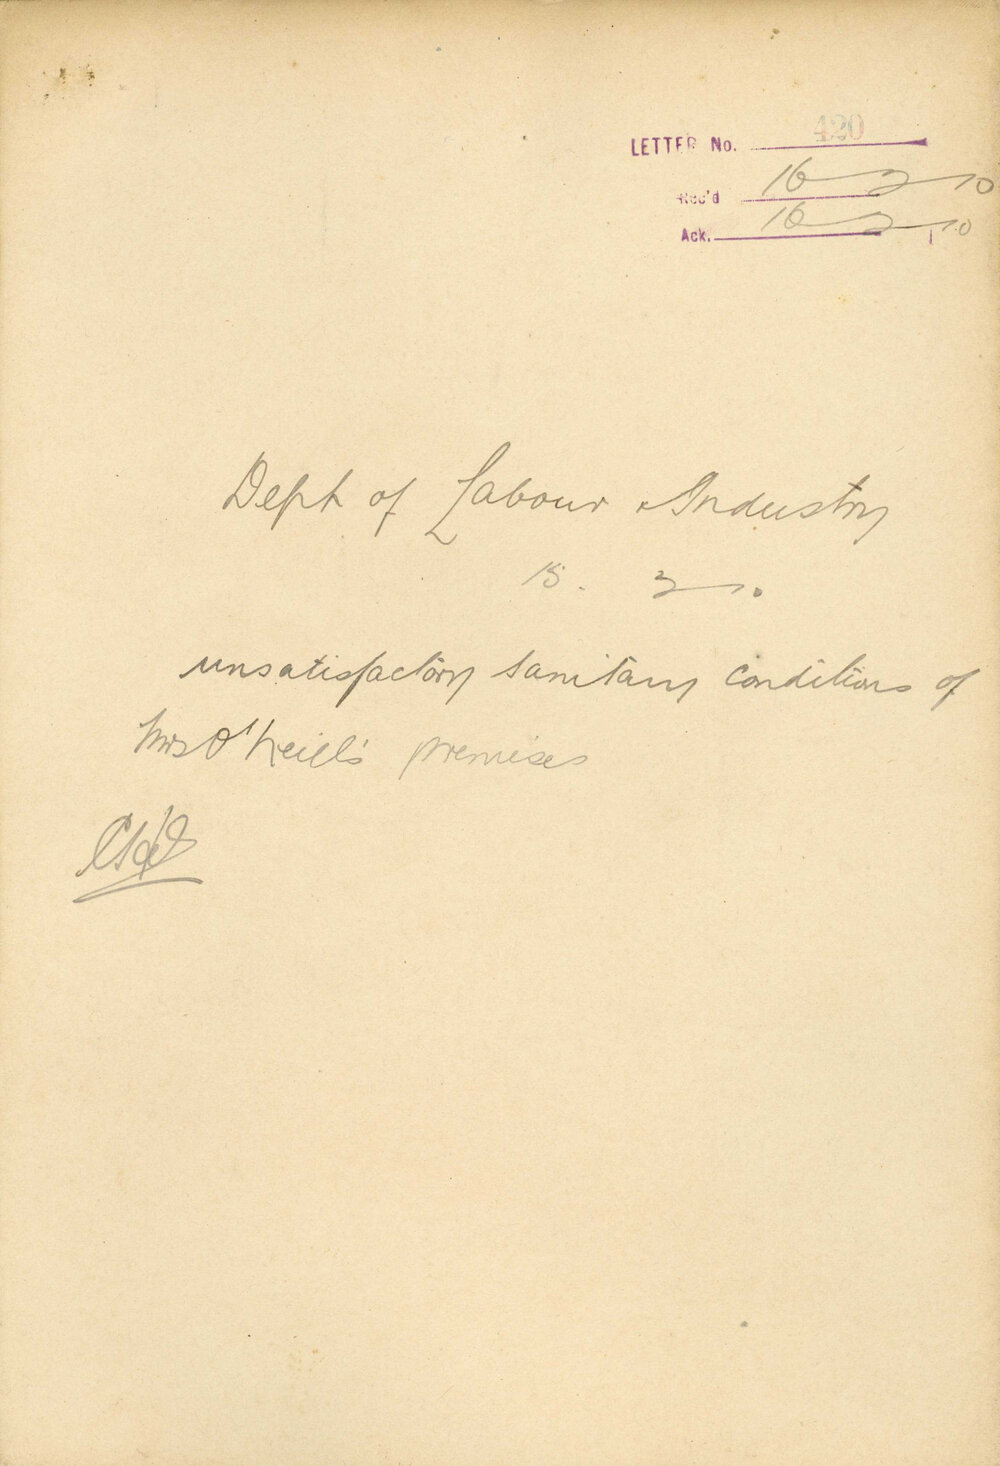 LETTER No. 420
Rec'd 16-2-10
Ack. 16-2-10
Dept of Labour & Industry
15. 2-10
unsatisfactory sanitary conditions of
Mrs O'Neill's premises